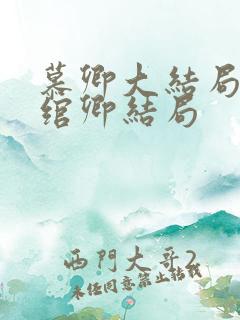 慕卿大結局
綰卿結局
西門大哥2
未経同意禁止轉載